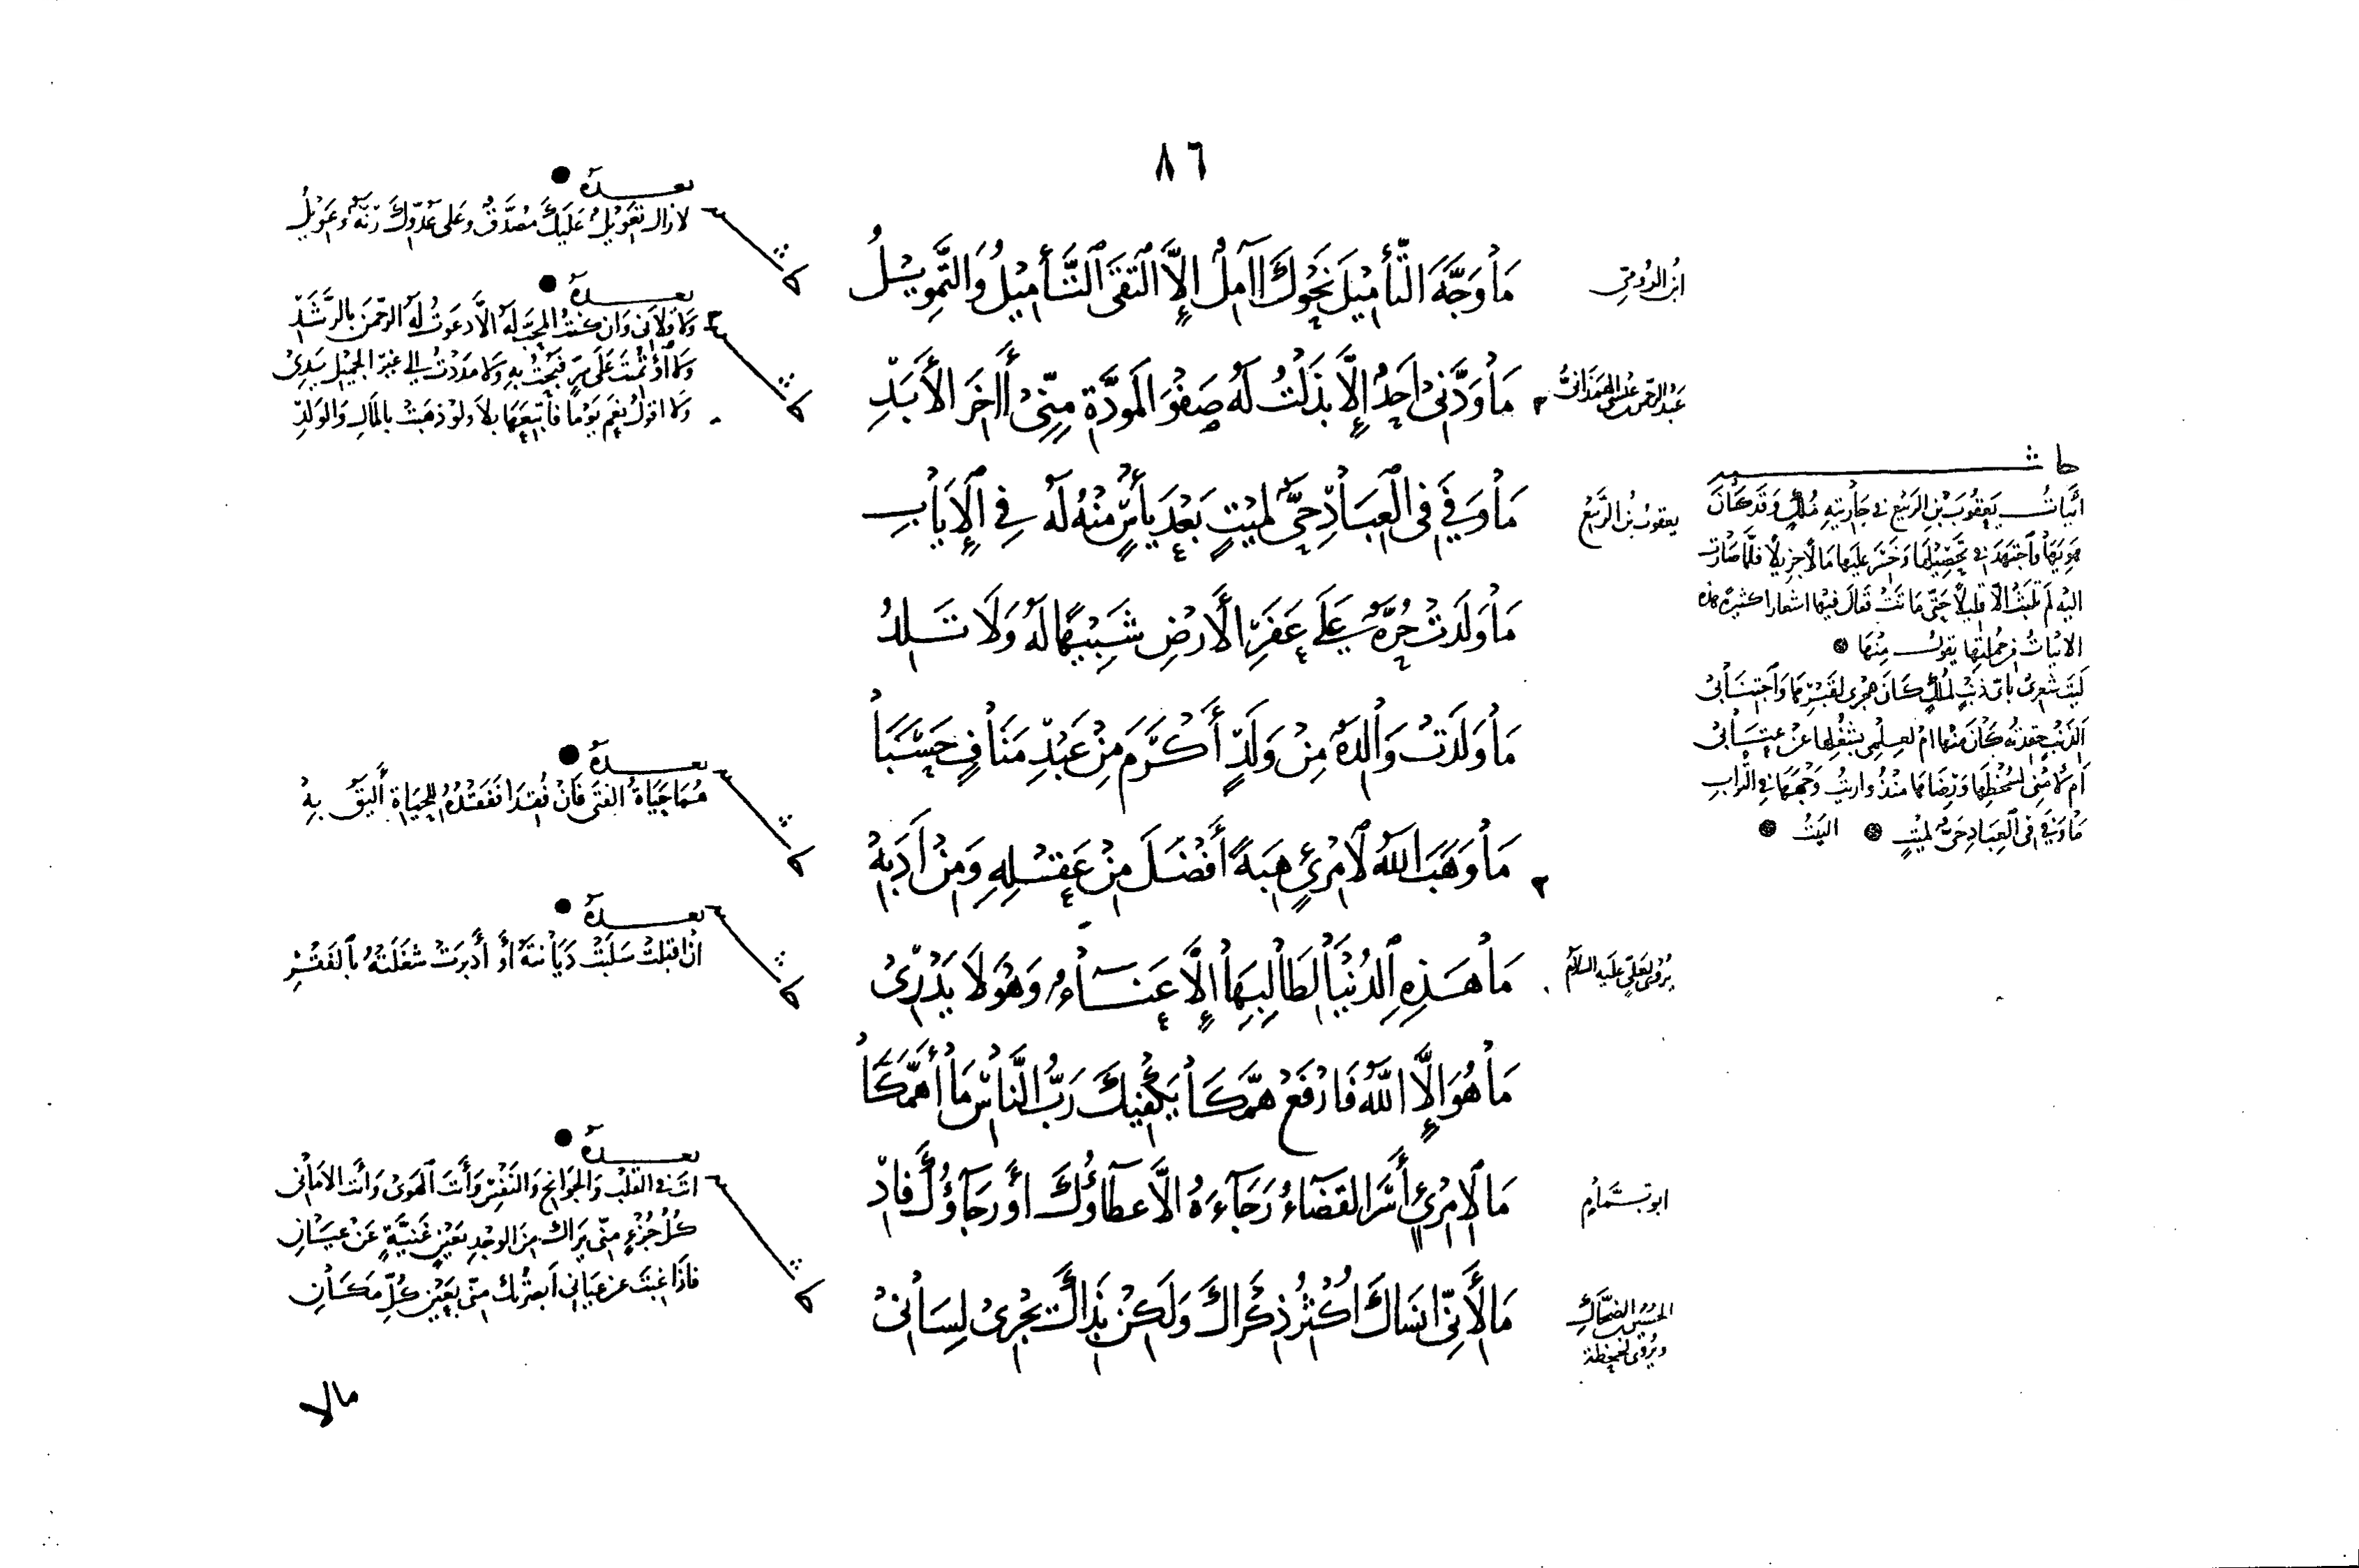 ٨٦
ابن الرومي
مَا وَجَّهَ التأمِيلَ نَحْوَكَ آمِلٌ إِلَّا التَقَى التَّأمِيْلُ وَالتَّمويْلُ
بعده
لا زال تعويلٌ عَلَيكَ مُصَدَّقٌ وعَلى عَدوّكَ رَنَّةٌ وعَويْلُ
عبد الرحمن بن عيسى الهمذاني
مَا وَدَّنِي أَحَدٌ إِلَّا بَذَلْتُ لَهُ صَفْوَ المَودَّةِ مِنِّي آخِرَ الأَبَدِ
بعده
وَلا قلاني وَان كنت المحبّ لَه الّا دعَوتُ لَه الرحمنَ بالرَّشَدِ
وَلا اؤتُمنت عَلَى سِرٍ فبُحْتُ بهِ وَلا مَدَدْتُ الى غيرِ الجميْلِ يَدِي
وَلا اقولُ نعم يَوْماً فأُتبعَهَا بلا ولو ذهبَتْ بالمالِ وَالوَلدِ
يعقوب بن الربيع
مَا وَفَى فِي العِبَادِ حَيٌّ لمَيْتٍ بَعْدَ يَأسٍ مِنْهُ لَه فِي الإِيَابِ
حاشية
ابيات يعقوبَ بنِ الربيع في جاريتهِ مُلك وَقد كانَ
هويَهَا واجتهدَ في تحصِيْلها وَخسَر عليها مَالاً جزيلاً فلمّا صارت
اليْه لَم تلبَث الّا قليلاً حَتّى ماتَتْ فقال فيها اشعارا كثيرة هذه
الابيات من جملتها يقول مِنْهَا
لَيتَ شعرِى باىّ ذنبٍ لمُلكٍ كانَ هجْرِى لقبْرِهَا وَاجتنَابِى
الذنبٍ حقدتُه كانَ منها ام لعِلْمِي بشغْلِها عن عِتَابِى
أم لأمْنِى لسُخْطِها وَرِضاهَا منذُ واريتُ وَجهَهَا في التّرابِ
مَا وَفَى فى العِبَادِ حَيٌّ لمَيْتٍ البَيتُ
مَا وَلَدَتْ حُرَّةٌ عَلَى عَفَرِ الأَرضِ شَبِيْهًا لَهُ وَلَا تَلِدُ
مَا وَلَدَتْ وَالِدَةٌ مِنْ وَلَدٍ أَكْرَمَ مِنْ عَبْدِ مَنَافٍ حَسَبَا
مَا وَهَبَ اللَّهُ لامْرِئٍ هِبَةً أَفْضَلَ مِنْ عَقْلِهِ وَمِنْ أَدَبِهْ
بعده
هُمَا حَيَاةُ الفتَى فَانْ فُقِدَا فَفَقْدُهُ للحَيَاةِ أَليَقُ بِهْ
يُروى لعليّ عليه السلام
مَا هَذِهِ الدُنْيَا لِطَالِبِهَا إِلَّا عَنَاءٌ وَهْوَ لَا يَدْرِى
بعده
ان اقبلت سَلَبَتْ دِيَانتَهُ أو أَدبرَتْ شغَلَتْهُ بالفَقْرِ
مَا هُوَ إِلَّا اللَّهُ فَارْفَعْ هَمَّكَا يَكْفِيْكَ رَبُّ النَّاسِ مَا أَهَمَّكَا
ابو تمام
مَا لِامْرِئٍ أَسَرَ القَضَاءُ رَجَاءَهُ الَّا عطَاؤُكَ أَو رَجَاؤُكَ فَادِ
الحسين بن الضحاك
ويُروى لجحظة
مَا لِأَنِّي انسَاكَ اكْثِرُ ذِكْرَاكَ وَلَكِنْ بِذَاكَ يَجْرِى لِسَانِىْ
بعده
انتَ في القَلْب وَالجَوَانِح وَالنَفْسِ وَأَنتَ الهَوَى وَأَنت الأَمَانِى
كُلُّ جُزْءٍ مِنّى يَراكَ مِنَ الوَجْدِ بعَيْنٍ غَنيَّةٍ عَنْ عيَانِ
فاذا غِبتَ عن عيَانِى أَبصرتُك منّى بعَيْنِ كُلِّ مَكَانِ
مالا